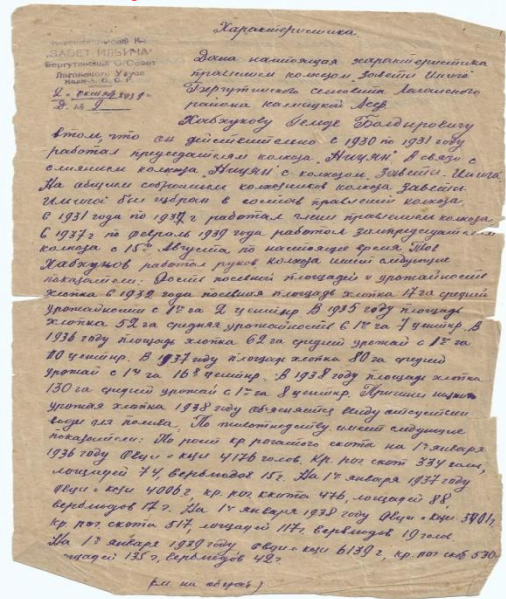 Характеристика
"ЗАВЕТ ИЛЬИЧА"
Бергутинский С/Совет
Лаганского Улуса
Дана настоящая характеристика
правлением колхоза Заветы Илича
района Калмицкой Асср.
Хабжукову Болдыровичу
в том, что он действительно с 1930 по 1931 году
работал председателям колхоза в связи с
слиянием колхоза с колхозом Заветы Илича.
На общим собранием колхозников колхоза Заветы
Илича был избран в состав правление колхоза
с 1931 года по 1937 г работал член правлением колхоза
с 1937 г. по февраль 1939 года работал зампредседателем
колхоза с 15го Августа по настоящее время Тов
работал руков колхоза имеет следующие
показатели: Рость посевной площадей и урожайность
хлопка в 1932 года посевная площадь хлопка 17 га средний
урожайности с 1го га 2 центнр. В 1935 году площадь
хлопка 52 га средняя урожайность с 1го га 7 центнр. В
1936 году площадь хлопка 62 га средний урожай с 1го га
10 центнр. В 1937 году площадь хлопка 80 га средний
урожай с 1го га 16 центнр. В 1938 году площадь хлопка
130 га средний урожай с 1го га 8 центнр. Причина
урожая хлопка 1938 году объясняется ввиду отсутствии
воды для полива. По животноводству имеет следующие
показатели: По рост кр рогатого скота на 1е января
1936 году Овци и кози 4176 голов. Кр. рог скот 334 голов,
лощадей 74, верблюдов 15 г. На 1е января 1937 году
Овци и кози 4006 г, кр. рог скота 476, лощадей 88,
верблюдов 17 г. На 1е января 1938 году Овци и кози
кр. рог. скота 517, лощадей 117 г. верблюдов 19 голов
На 1е января 1939 году овци и кози 6139 г, кр. рог скот 530
лощадей 135 г, верблюдов 42 г
(см на оборот)